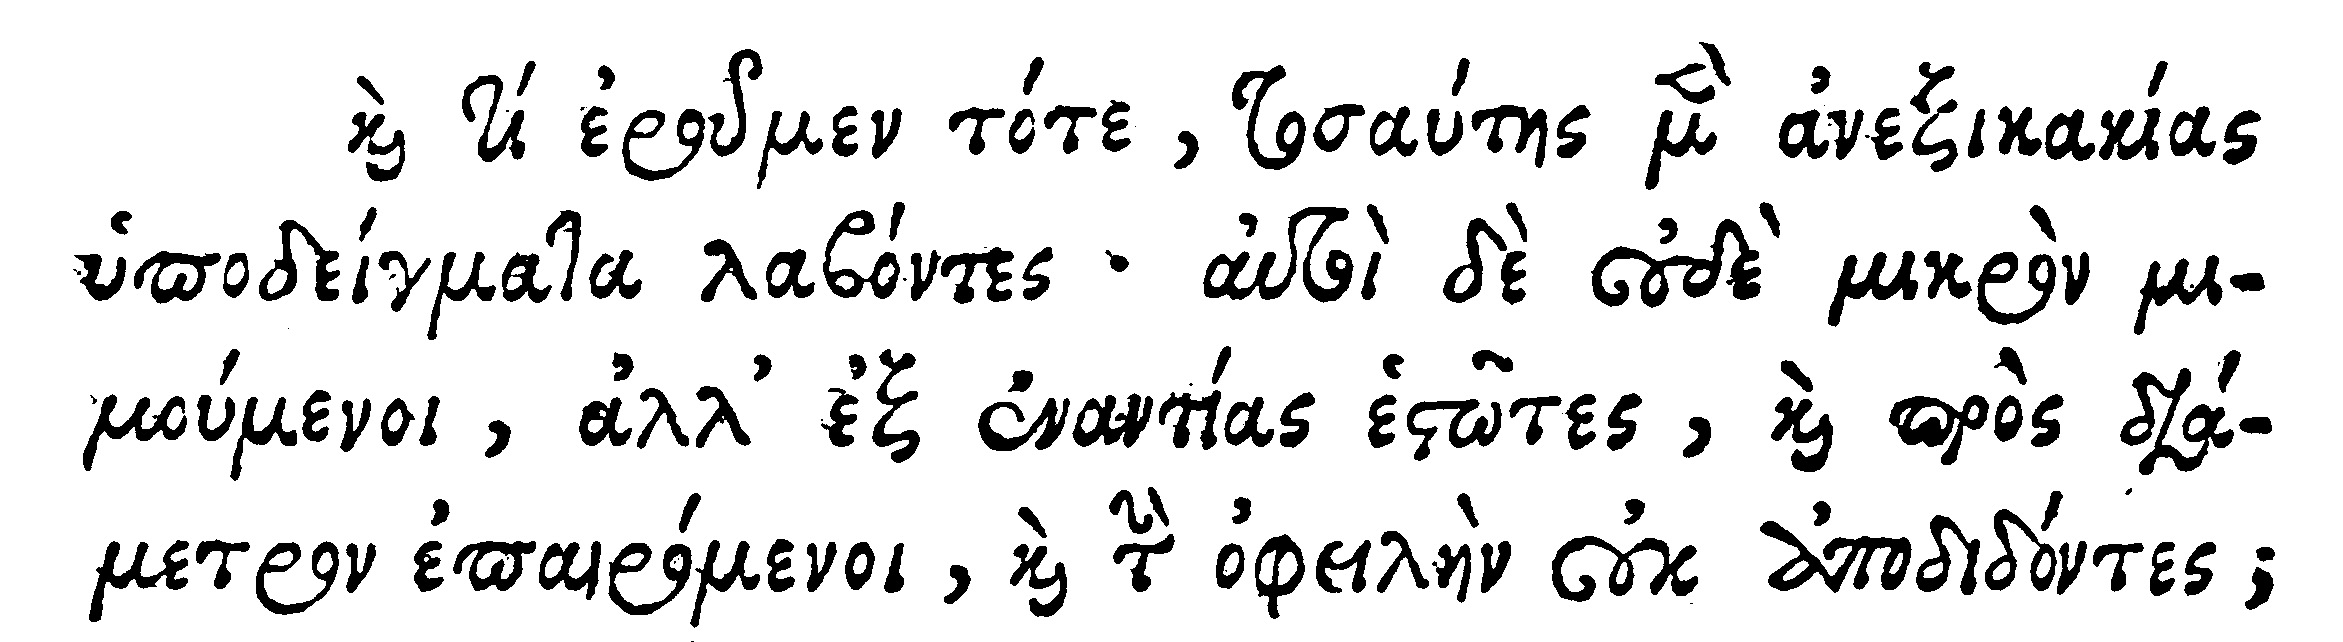 καὶ τί ἐροῦμεν τότε, τοσαύτης μὲν ἀνεξικακίας
ὑποδείγματα λαβόντες · αὐτοὶ δὲ οὐδὲ μικρὸν μι-
μούμενοι, ἀλλ’ ἐξ ἐναντίας ἑστῶτες, καὶ πρὸς διά-
μετρον ἐπαιρόμενοι, καὶ τὴν ὀφειλὴν οὐκ ἀποδιδόντες;